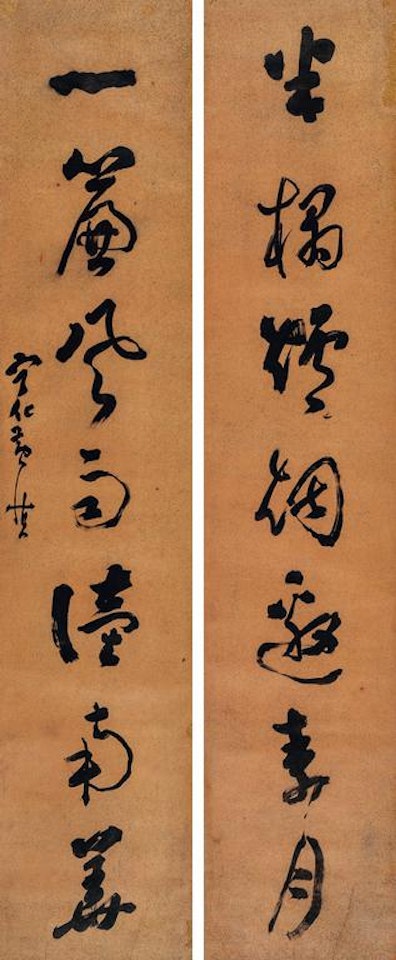 半榻爐烟邀素月
一簾風雨讀南華
寧化黃慎